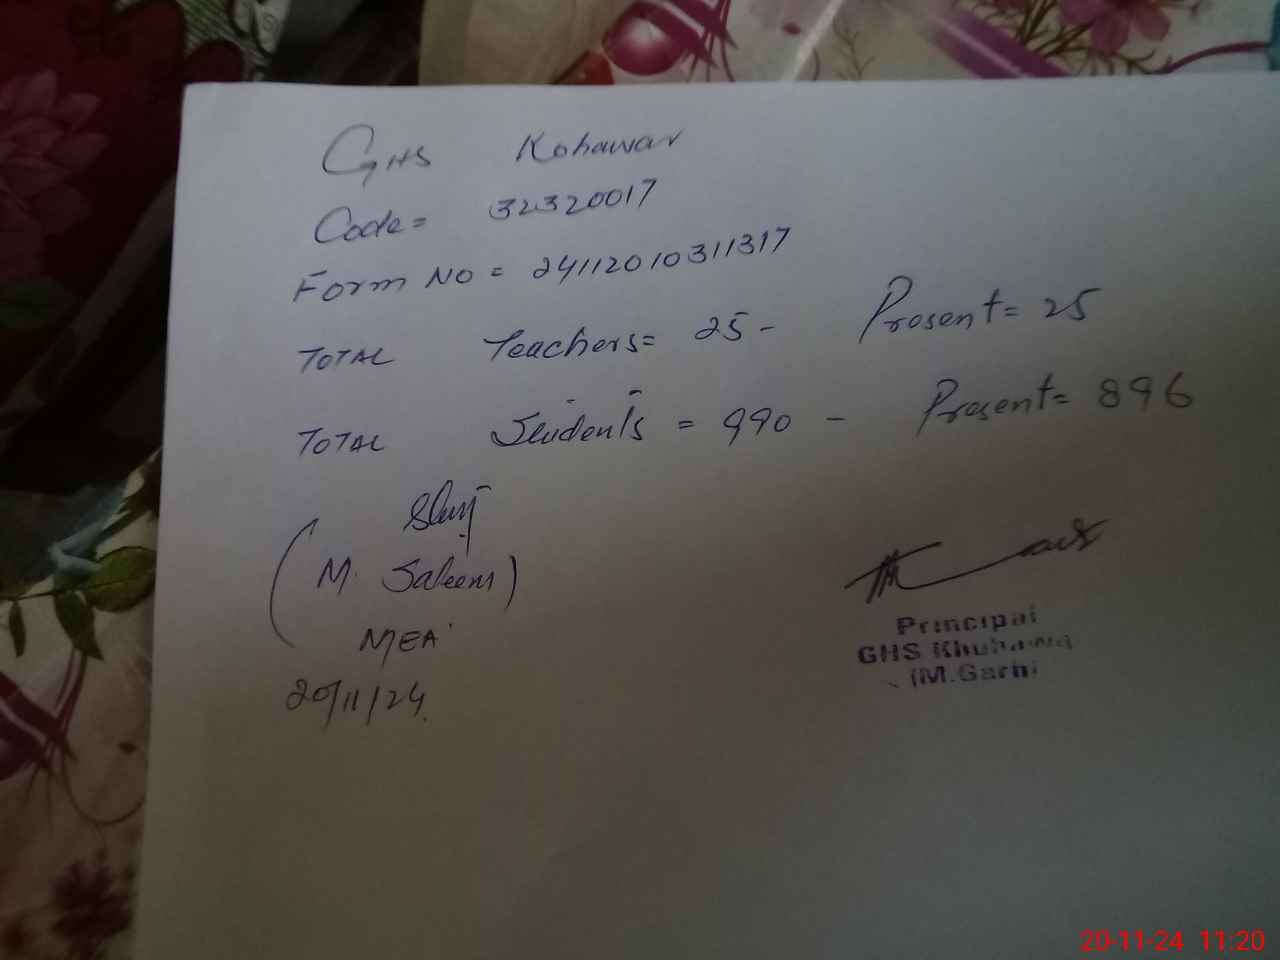 GHS Kohawar
Code= 32320017
Form No = 24112010311317
TOTAL Teachers= 25 - Present= 25
TOTAL Students = 990 - Present= 896
(M. Saleem)
MEA
20/11/24
Principal
GHS Khuhawa
(M.Garh)
20-11-24 11:20